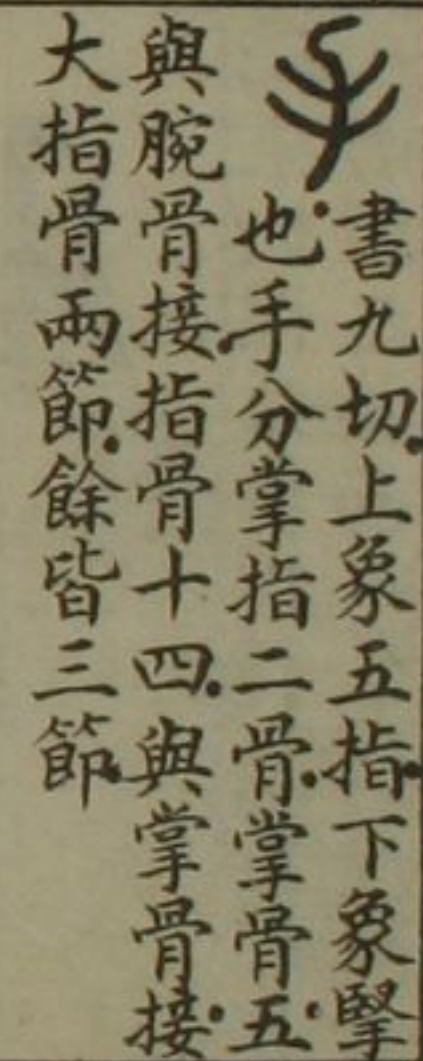 手
書九切。上象五指。下象掔
也。手分掌指二骨。掌骨五。
與腕骨接。指骨十四。與掌骨接。
大指骨兩節。餘皆三節。